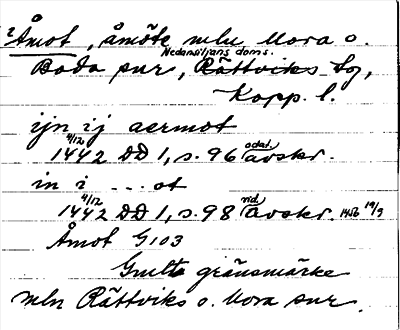 2 Åmot, åmöte mln Mora o.
Nedansiljans doms.
Boda snr, Rättviks lg,
Kopp. l.
ijn ij aermot
4/12 odat.
1442 DD 1, s. 96 avskr.
in i ... ot
4/12 vid.
1442 DD 1, s. 98 avskr. 1456 19/7
Åmot G103
Gmlt gränsmärke
mln Rättviks o. Mora snr.